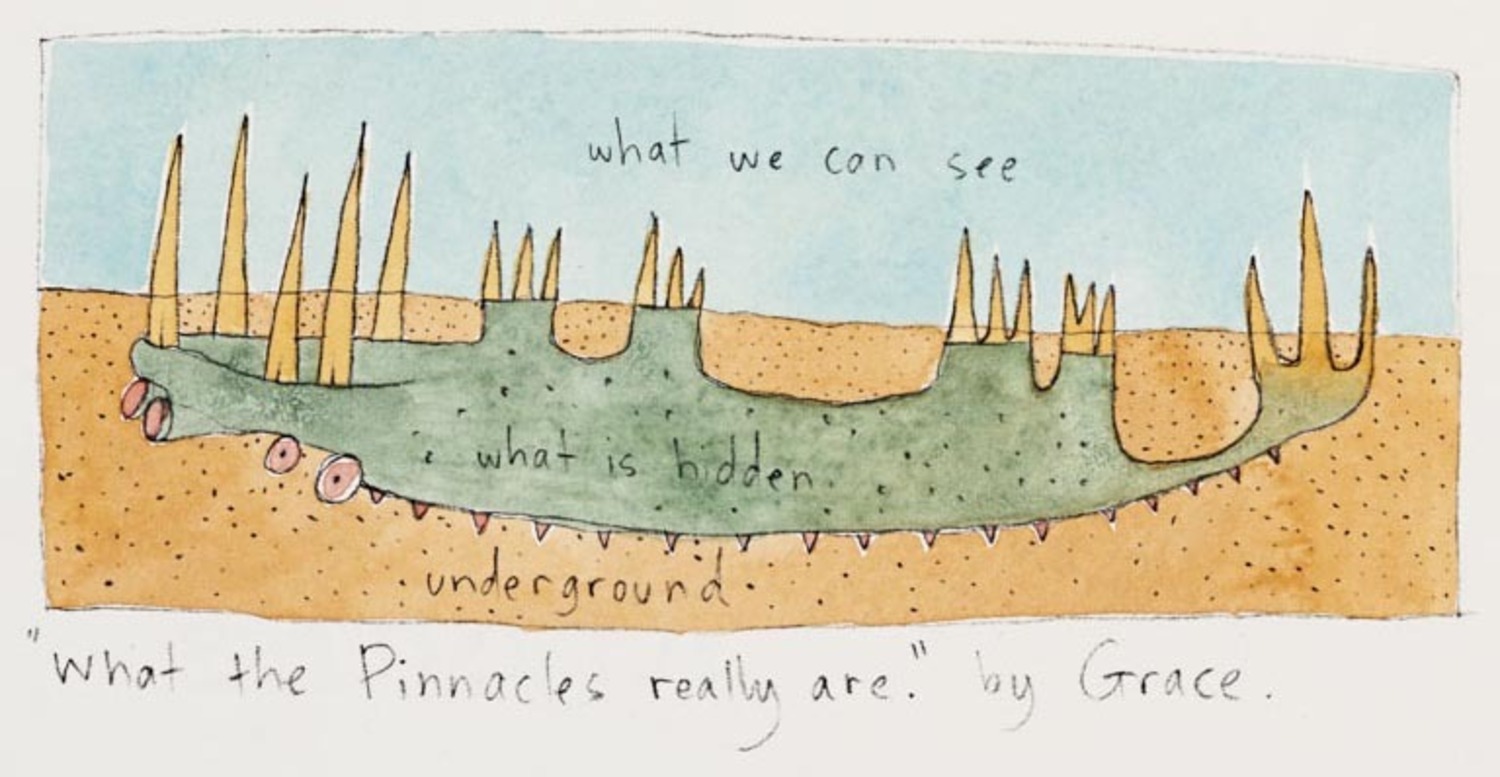 what we can see
what is hidden.
underground.
"What the Pinnacles really are." by Grace.